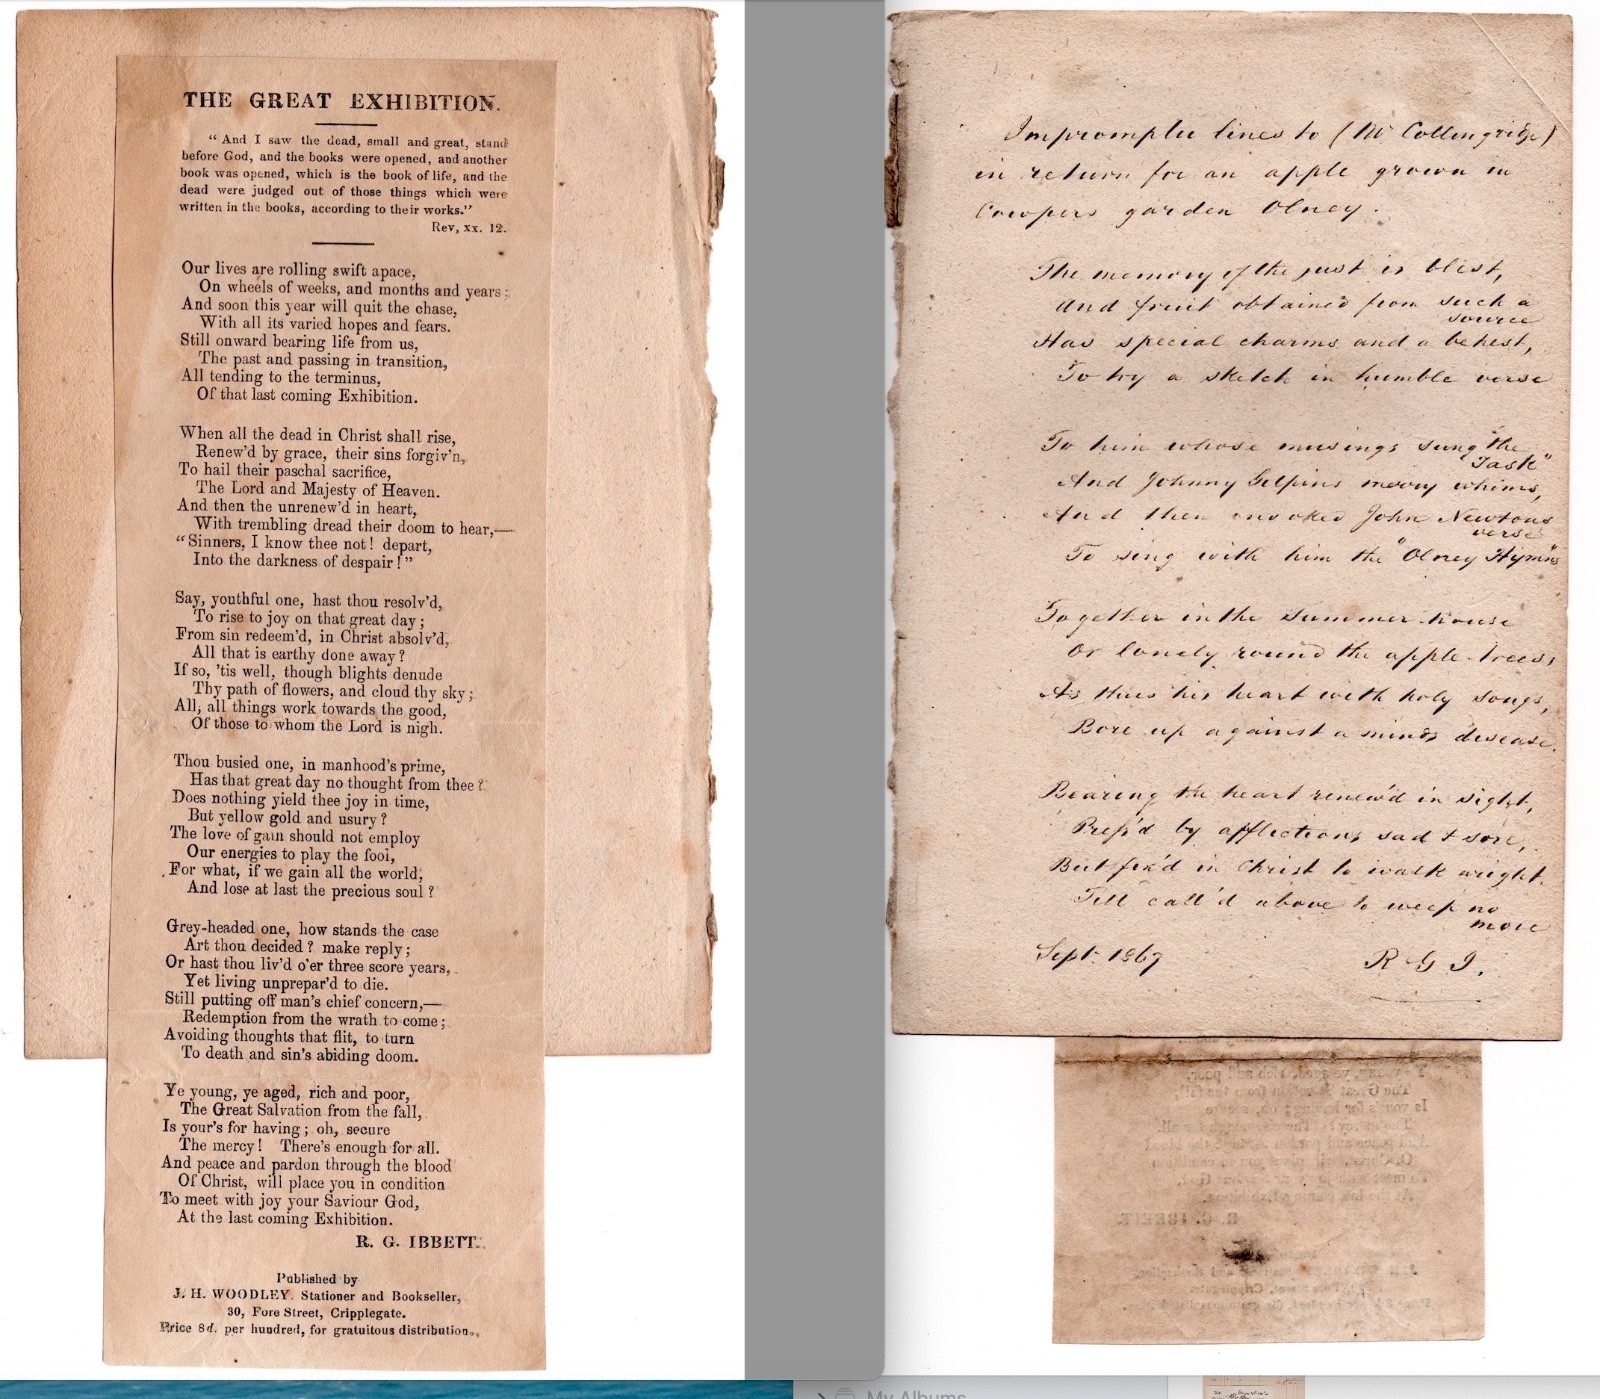 THE GREAT EXHIBITION.
“And I saw the dead, small and great, stand
before God, and the books were opened, and another
book was opened, which is the book of life, and the
dead were judged out of those things which were
written in the books, according to their works.”
Rev, xx. 12.
Our lives are rolling swift apace,
On wheels of weeks, and months and years;
And soon this year will quit the chase,
With all its varied hopes and fears.
Still onward bearing life from us,
The past and passing in transition,
All tending to the terminus,
Of that last coming Exhibition.
When all the dead in Christ shall rise,
Renew'd by grace, their sins forgiv'n,
To hail their paschal sacrifice,
The Lord and Majesty of Heaven.
And then the unrenew'd in heart,
With trembling dread their doom to hear,—
“Sinners, I know thee not! depart,
Into the darkness of despair!”
Say, youthful one, hast thou resolv'd,
To rise to joy on that great day;
From sin redeem'd, in Christ absolv'd,
All that is earthy done away?
If so, 'tis well, though blights denude
Thy path of flowers, and cloud thy sky;
All, all things work towards the good,
Of those to whom the Lord is nigh.
Thou busied one, in manhood's prime,
Has that great day no thought from thee?
Does nothing yield thee joy in time,
But yellow gold and usury?
The love of gain should not employ
Our energies to play the fool,
For what, if we gain all the world,
And lose at last the precious soul?
Grey-headed one, how stands the case
Art thou decided? make reply;
Or hast thou liv'd o'er three score years,
Yet living unprepar'd to die.
Still putting off man's chief concern,—
Redemption from the wrath to come;
Avoiding thoughts that flit, to turn
To death and sin's abiding doom.
Ye young, ye aged, rich and poor,
The Great Salvation from the fall,
Is your's for having; oh, secure
The mercy! There's enough for all.
And peace and pardon through the blood
Of Christ, will place you in condition
To meet with joy your Saviour God,
At the last coming Exhibition.
R. G. IBBETT.
Published by
J. H. WOODLEY, Stationer and Bookseller,
30, Fore Street, Cripplegate.
Price 8d. per hundred, for gratuitous distribution.
Impromptu lines to (Mr Collingridge)
in return for an apple grown in
Cowpers garden Olney.
The memory of the just is blest,
And fruit obtained from such a
source
Has special charms and a behest,
To try a sketch in humble verse
To him whose musings sung "the
Task"
And Johnny Gilpins merry whims,
And then invoked John Newtons
verse
To sing with him the "Olney Hymns"
Together in the summer-house
Or lonely round the apple-trees,
As thus his heart with holy songs,
Bore up against a minds disease.
Bearing the heart renew'd in sight,
Prep'd by afflictions sad & sore,
But fix'd in Christ to walk aright
Till call'd above to weep no
more
Sept. 1867
R G I.
My Albums